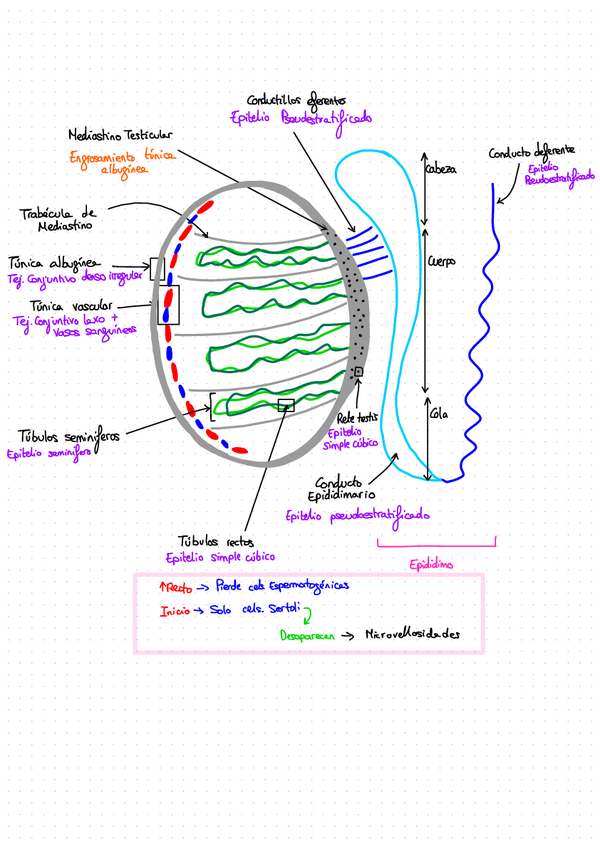 Conductillos eferentes
Epitelio Pseudoestratificado
Mediastino Testicular
Engrosamiento túnica
albugínea
Conducto deferente
Epitelio
Pseudoestratificado
Cabeza
Trabécula de
Mediastino
Túnica albugínea
Tej. Conjuntivo denso irregular
Cuerpo
Túnica vascular
Tej. Conjuntivo laxo +
Vasos sanguíneos
Rete testis
Epitelio
simple cúbico
Cola
Túbulos seminíferos
Epitelio seminífero
Conducto
Epididimario
Epitelio pseudoestratificado
Túbulos rectos
Epitelio simple cúbico
Epidídimo
↑Recto → Pierde cels Espermatogénicas
Inicio → Solo cels. Sertoli
Desaparecen → Microvellosidades